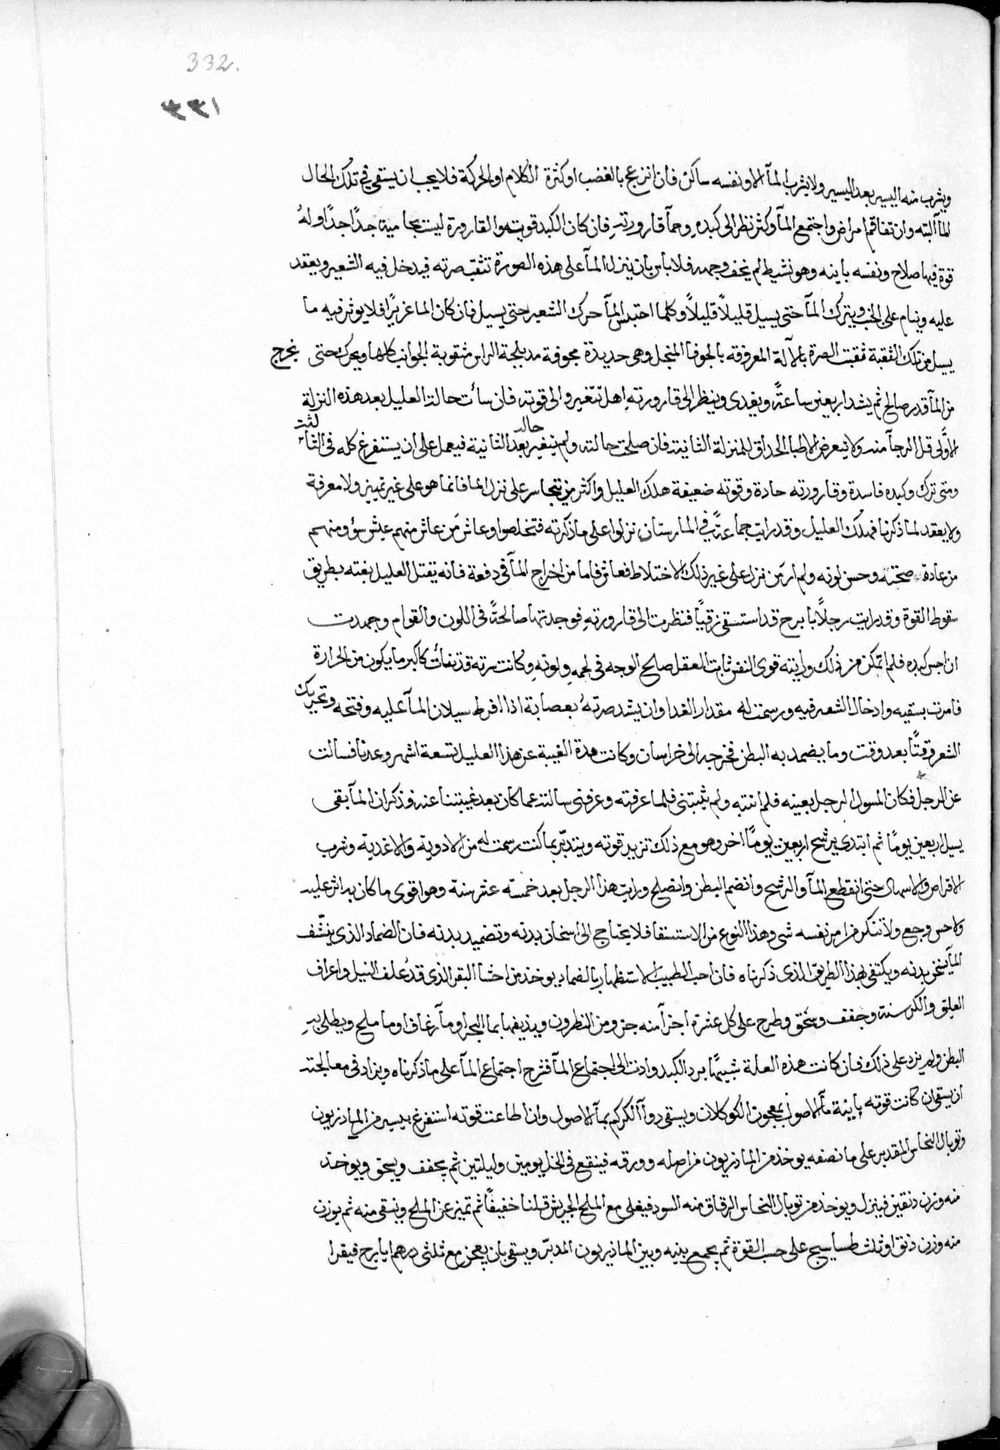 332.
٣٣١
ويشرب منه اليسير بعد اليسير ولا يشرب الماء الا ونفسه ساكن فان انزعج بالغضب او كثرة الكلام او الحركة فلا يجب ان يستقى في تلك الحال
الماء البتة وان تفاقم امراض واجتمع الماء وكثر نظر الى كبده وحمآ قارورته فان كان الكبد قوية والقارورة ليست بحامية جدًا جدًا وله
قوة فيها صلاح ونفسه باينه وهو نشيط لم يخف وجهه فلا باس بان ينزل الماء على هذه الصورة تثقب صرته فيدخل فيه الشعير ويعقد
عليه وينام على الجنب ويترك الماء حتى يسيل قليلًا قليلًا وكلما احتبس الماء حرك الشعير حتى يسيل فان كان الما غزيرًا فلا يوثر فيه ما
يسيل من تلك الثقبة ثقبت الصرة بالآلة المعروفه بالجوفا المنجل وهى حديدة مجوفة مدملجة الراس مثقوبة الجوانب كلها ويحرك حتى يخرج
من الماء قدر صالح ثم يشد اربعين ساعة ويغدى وينظر الى قارورته اهل تتغير والى قوته فان سائت حالة العليل بعد هذه النزلة
الاولى قل الرجآ منه ولا يتعرض الاطبا الحذاق للمنزلة الثانية فان صلحت حالته ولم يتغير حاله بعد الثانية فيعمل على ان يستفرغ كله فى الثالثة
ومتى ترك وكبده فاسدة وقارورته حادة وقوته ضعيفة هلك العليل واكثر من يتجاسر على نزل الما فانما هو على غير تمييز ولا معرفة
ولا يعقد لما ذكرنا فهلك العليل وقد رايت جماعة في المارستان نزلوا على ما ذكرته فتخلصوا وعاش من عاش منهم عيش سوٍ ومنهم
من عاد صحته وحسن لونه ولم ار من نزل على غير ذلك الاختلاط فعاش فاما من اخراج الماء في دفعة فانه يقتل العليل بغته بطريق
سقوط القوة وقد رايت رجلًا بابرح قد استسقى زقيًا فنظرت الى قارورته فوجدتها صالحة فى اللون والقوام وجهدت
ان اجس كبده فلم اتمكن من ذلك ورايته قوى النفس ثابت العقل صالح الوجه فى لحمه ولونه وكانت سرته قد نفأت كاكبر ما يكون من الحرارة
فامرت بسقيه وادخال الشعير فيه ورسمت له مقدار الغدا وان يشد صرته بعصابة اذا افرط سيلان الماء عليه وفتحه وتحريك
الشعر وقتًا بعد وقت وما يضمد به البطن فخرجه الى خراسان وكانت مدة الغيبة عن هذا العليل تسعة اشهر وعدنا فسالت
عن الرجل فكان المسول الرجل بعينه فلم انتبه ولم يثبتنى فلما عرفته وعرفنى سالته عما كان بعد غيبتنا عنه فذكر ان الماء بقى
يسيل اربعين يومًا ثم ابتدى يرشح اربعين يومًا اخر وهو مع ذلك تزيد قوته ويتدبر بما كنت رسمت له من الادوية والاغدية وشرب
الاقراص والاسهال حتى انقطع الماء والرشح وانضم البطن وانصلح ورايت هذا الرجل بعد خمسة عشر سنة وهو اقوى ما كان به اثر عليه
ولا حس وجع ولا تنكر مزاج من نفسه شى وهذا النوع من الاستسقا فلا يحتاج الى اسخان بدنه وتضميد بدنه فان الضماد الذى ينشف
الماء يسخن بدنه ويكتفى بهذا الطريق الذى ذكرناه فان احب الطبيب الاستظهار بالضماد يوخذ من اخثا البقر الذى قد علف النيل واعراف
العليق والكرسنة وجفف وسحق وطرح على كل عشرة اجزآ منه جزو من النطرون ويذيفها بما البحر او مآ رغافا او ما ملح ويطلى به
البطن ولم يزد على ذلك فان كانت هذه العلة شيئها برد الكبد وادت الى اجتماع الماء فترج اجتماع الماء على ما ذكرناه ويزاد فى معالجته
ان يسقى ان كانت قوته باينة مآ الاصول بمعجون الكوكلان ويسقى دوآ الكركم بمآ الاصول وان اطاعت قوته استفرغ بيسير من الماذريون
وتوبال النحاس المقدر على ما نصفه يوخذ من الماذريون من اصله وورقه فينقع فى الخل يومين وليلتين ثم يجفف ويسحق ويوخذ
منه وزن دنقين فينزل ويوخذ من توبال النحاس الرقاق منه السود فيغلى مع الملح الجريش قلبنا خفيفًا ثم تميز عن الملح وينقى منه ثم يوزن
منه وزن دنق او ثلث طساسيج على حسب القوة ثم يجمع بينه وبين الماذريون المدبر ويسقى بان يعجن مع ثلثى درهم ايارج فيقرا